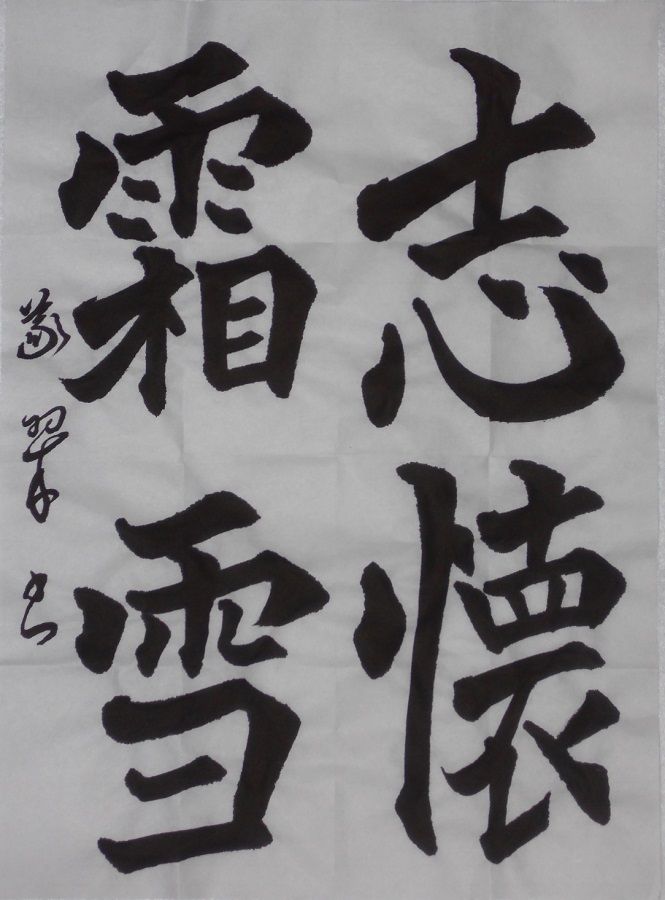 志懷
霜雪
翠書